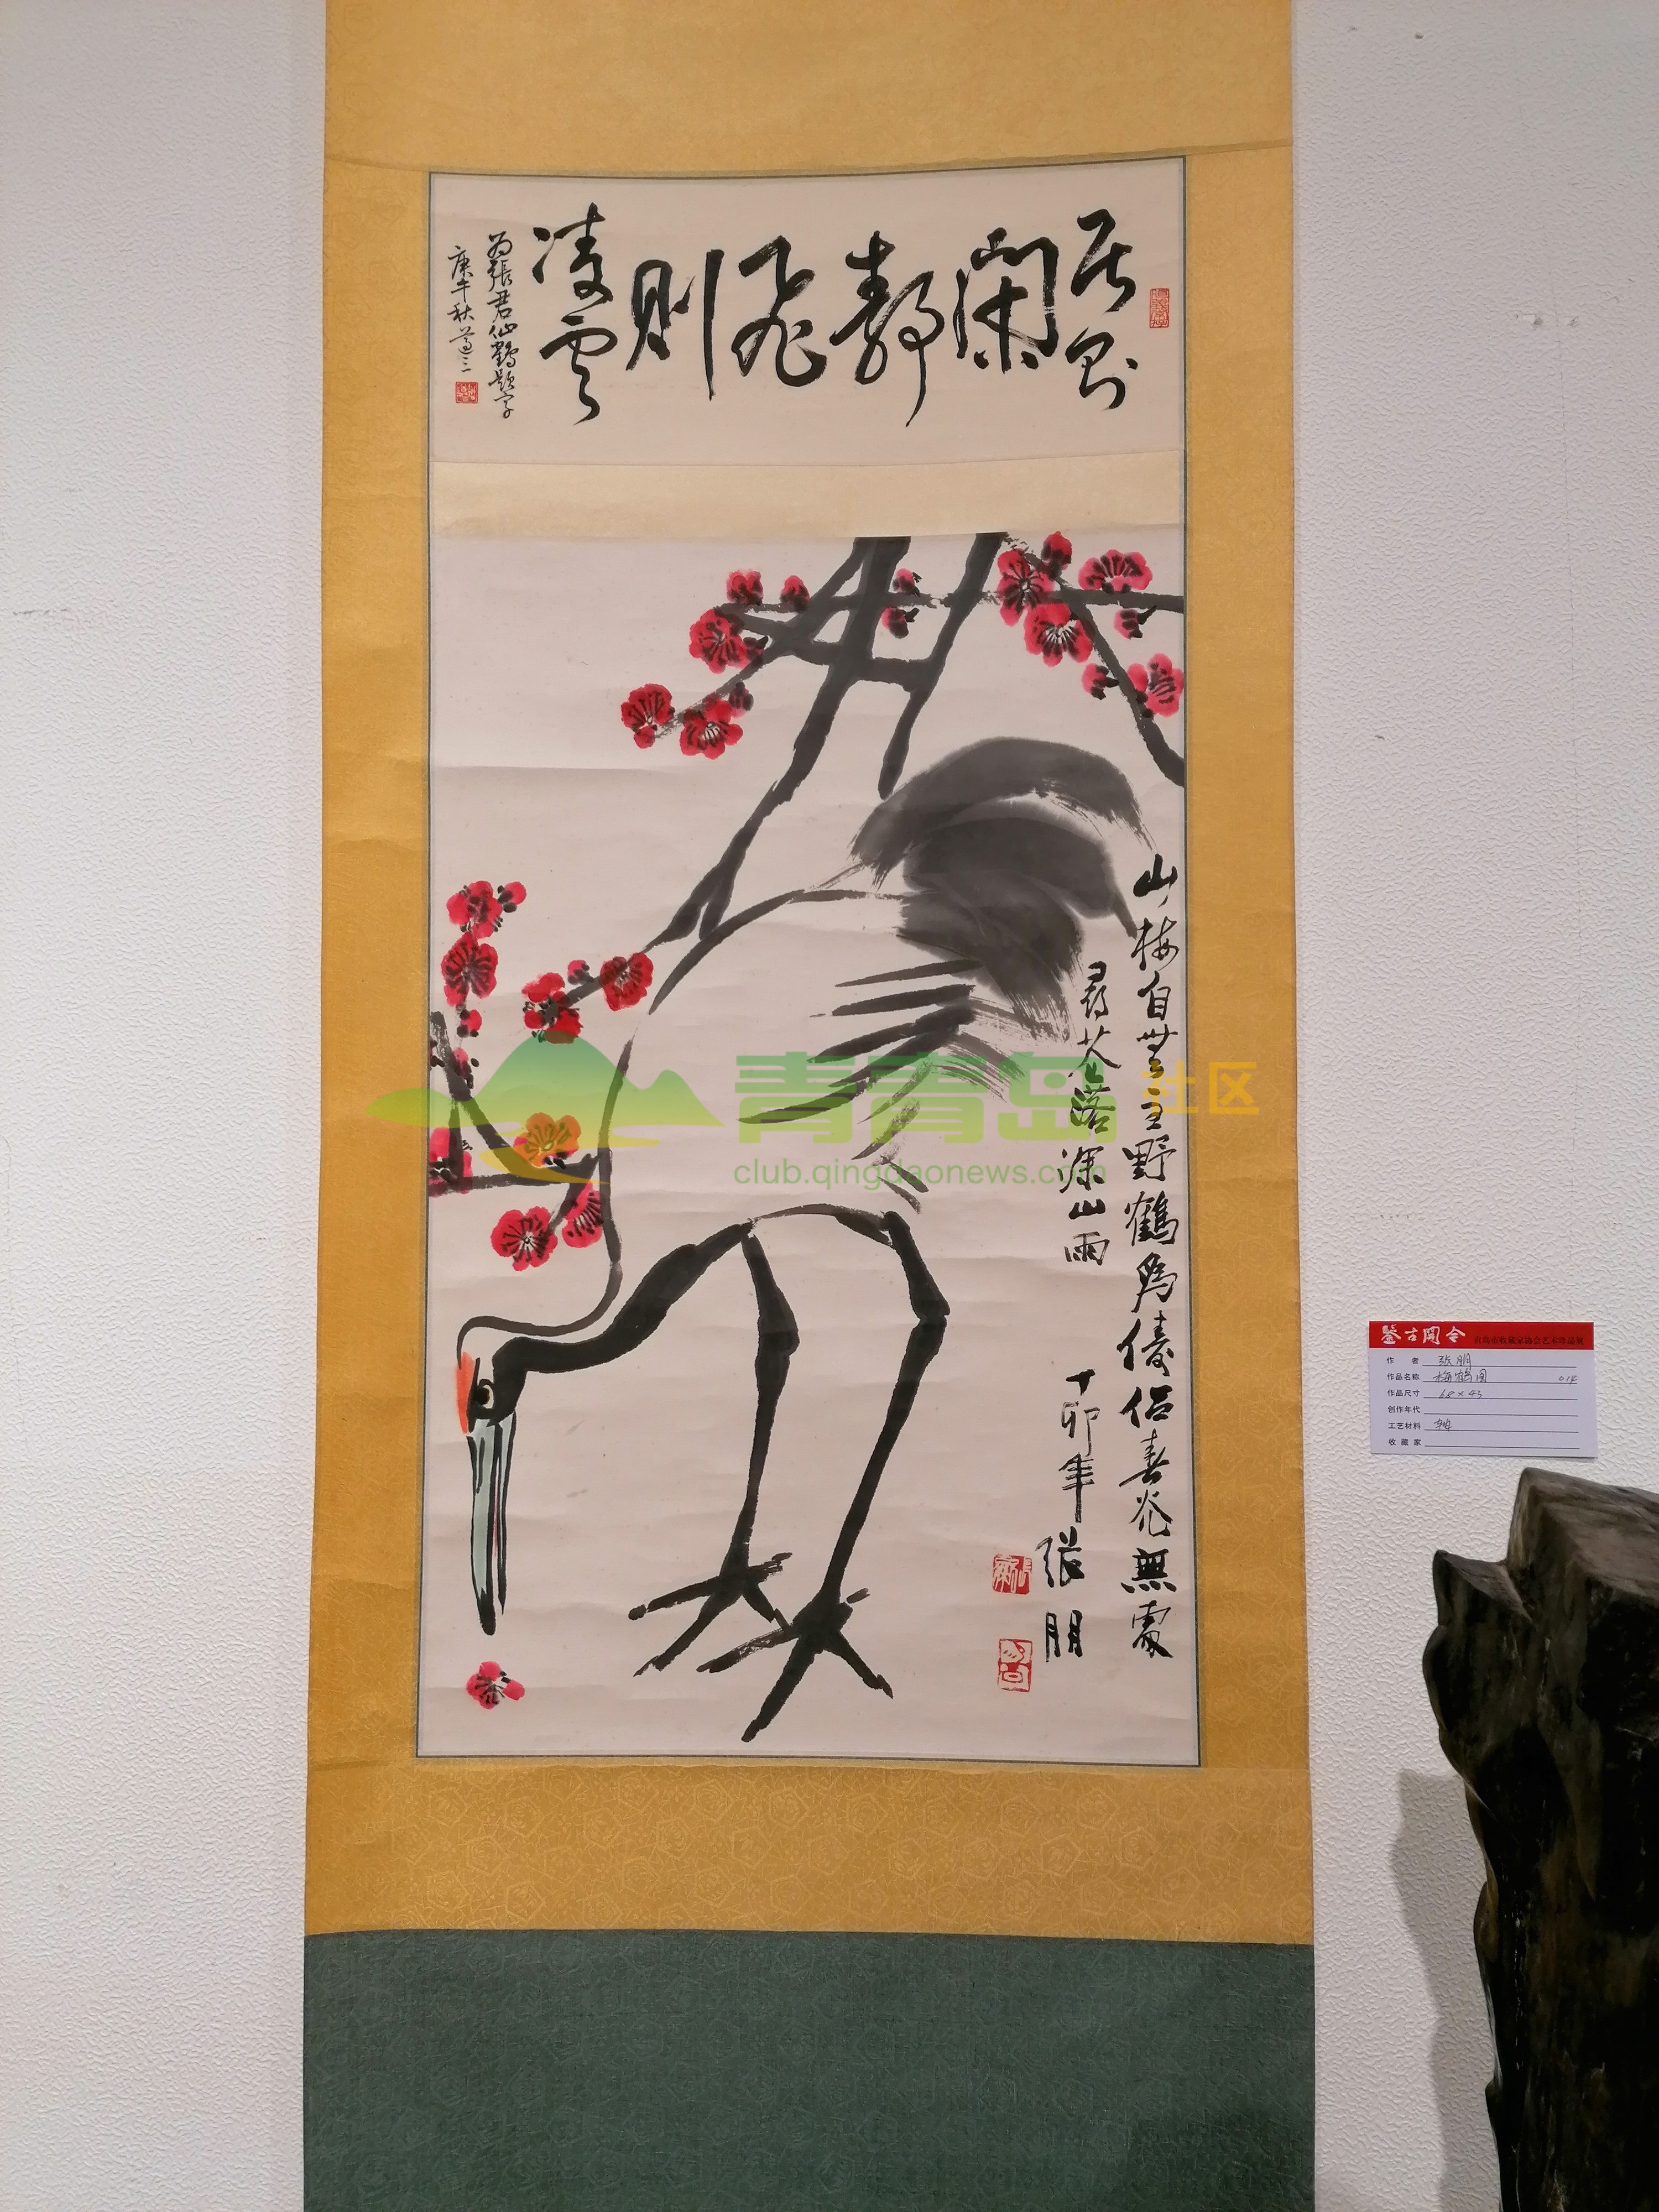 居则
闲静
飞则
凌云
为張君仙鹤题字
庚午秋
山梅自無主野鶴為儔侣春光無處
尋花落深山雨
丁卯年張朋
青青岛社区
club.qingdaonews.com
鉴古閱今 青岛市收藏家协会艺术珍品展
作者 张朋
作品名称 梅鹤图 014
作品尺寸 68×43
创作年代
工艺材料 轴
收藏家